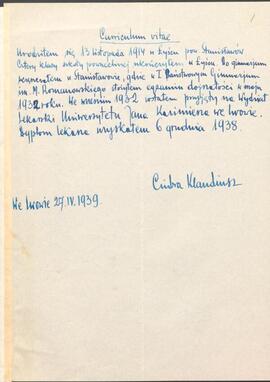 1
Curriculum vitae
Urodziłem się 13 listopada 1914 w Łyścu pow. Stanisławów
Cztery klasy szkoły powszechnej ukończyłem w Łyścu. Do gimnazjum
uczęszczałem w Stanisławowie, gdzie w I Państwowym Gimnazjum
im. M. Romanowskiego złożyłem egzamin dojrzałości w maju
1932 roku. We wrześniu 1932 zostałem przyjęty na Wydział
lekarski Uniwersytetu Jana Kazimierza we Lwowie.
Dyplom lekarza uzyskałem 6 grudnia 1938.
Klaudiusz
We Lwowie 27.IV.1939.